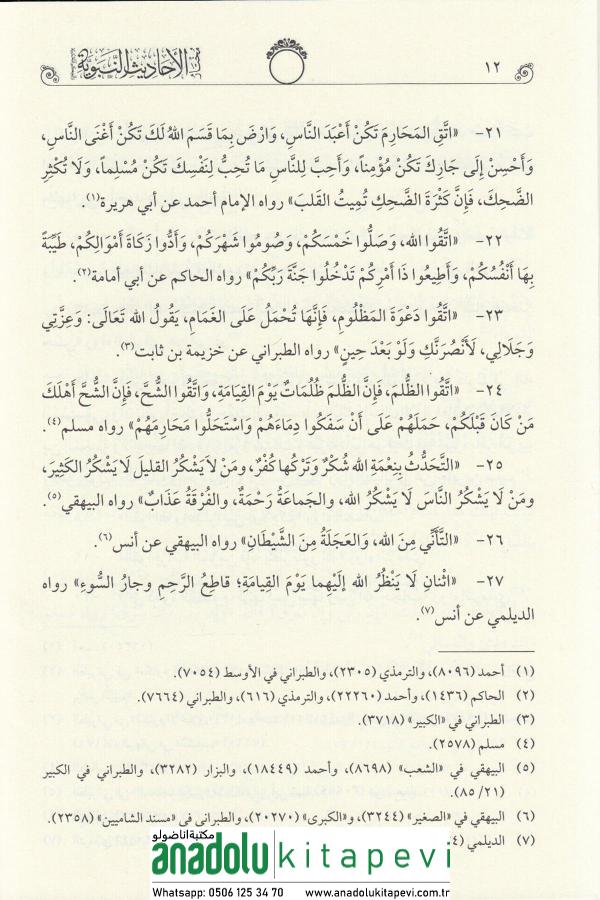 ١٢
الأحاديث النبوية
٢١- «اتَّقِ المَحَارِمَ تَكُنْ أَعْبَدَ النَّاسِ، وَارْضَ بِمَا قَسَمَ اللهُ لَكَ تَكُنْ أَغْنَى النَّاسِ،
وَأَحْسِنْ إِلَى جَارِكَ تَكُنْ مُؤْمِناً، وَأَحِبَّ لِلنَّاسِ مَا تُحِبُّ لِنَفْسِكَ تَكُنْ مُسْلِماً، وَلَا تُكْثِرِ
الضَّحِكَ، فَإِنَّ كَثْرَةَ الضَّحِكِ تُمِيتُ القَلبَ» رواه الإمام أحمد عن أبي هريرة(١).
٢٢- «اتَّقُوا الله، وَصَلُّوا خَمْسَكُمْ، وَصُومُوا شَهْرَكُمْ، وَأَدُّوا زَكَاةَ أَمْوَالِكُمْ، طَيِّبَةً
بِهَا أَنْفُسُكُمْ، وَأَطِيعُوا ذَا أَمْرِكُمْ تَدْخُلُوا جَنَّةَ رَبِّكُمْ» رواه الحاكم عن أبي أمامة(٢).
٢٣- «اتَّقُوا دَعْوَةَ المَظْلُومِ، فَإِنَّهَا تُحْمَلُ عَلَى الغَمَامِ، يَقُولُ الله تَعَالَى: وَعِزَّتِي
وَجَلَالِي، لَأَنْصُرَنَّكِ وَلَوْ بَعْدَ حِينٍ» رواه الطبراني عن خزيمة بن ثابت(٣).
٢٤- «اتَّقُوا الظُّلمَ، فَإِنَّ الظُّلمَ ظُلُمَاتٌ يَوْمَ القِيَامَةِ، وَاتَّقُوا الشُّحَّ، فَإِنَّ الشُّحَّ أَهْلَكَ
مَنْ كَانَ قَبْلَكُمْ، حَمَلَهُمْ عَلَى أَنْ سَفَكُوا دِمَاءَهُمْ وَاسْتَحَلُّوا مَحَارِمَهُمْ» رواه مسلم(٤).
٢٥- «التَّحَدُّثُ بِنِعْمَةِ اللهِ شُكْرٌ وَتَرْكُها كُفْرٌ، ومَنْ لاَ يَشْكُرُ القليلَ لَا يَشْكُرُ الكَثِيرَ،
ومَنْ لَا يَشْكُرُ النَّاسَ لَا يَشْكُرُ الله، والجَماعَةُ رَحْمَةٌ، والفُرْقَةُ عَذَابٌ» رواه البيهقي(٥).
٢٦- «التَّأَنِّي مِنَ الله، وَالعَجَلَةُ مِنَ الشَّيْطَانِ» رواه البيهقي عن أنس(٦).
٢٧- «اثْنانِ لَا يَنْظُرُ الله إلَيْهِما يَوْمَ القِيَامَةِ؛ قاطِعُ الرَّحِمِ وجارُ السُّوءِ» رواه
الديلمي عن أنس(٧).
(١) أحمد (٨٠٩٦)، والترمذي (٢٣٠٥)، والطبراني في الأوسط (٧٠٥٤).
(٢) الحاكم (١٤٣٦)، وأحمد (٢٢٢٦٠)، والترمذي (٦١٦)، والطبراني (٧٦٦٤).
(٣) الطبراني في «الكبير» (٣٧١٨).
(٤) مسلم (٢٥٧٨).
(٥) البيهقي في «الشعب» (٨٦٩٨)، وأحمد (١٨٤٤٩)، والبزار (٣٢٨٢)، والطبراني في الكبير
(٢١/ ٨٥).
(٦) البيهقي في «الصغير» (٣٢٤٤)، و«الكبرى» (٢٠٢٧٠)، والطبراني في «مسند الشاميين» (٢٣٥٨).
(٧) الديلمي
مكتبة اناضولو
anadolu kitapevi
Whatsapp: 0506 125 34 70 www.anadolukitapevi.com.tr